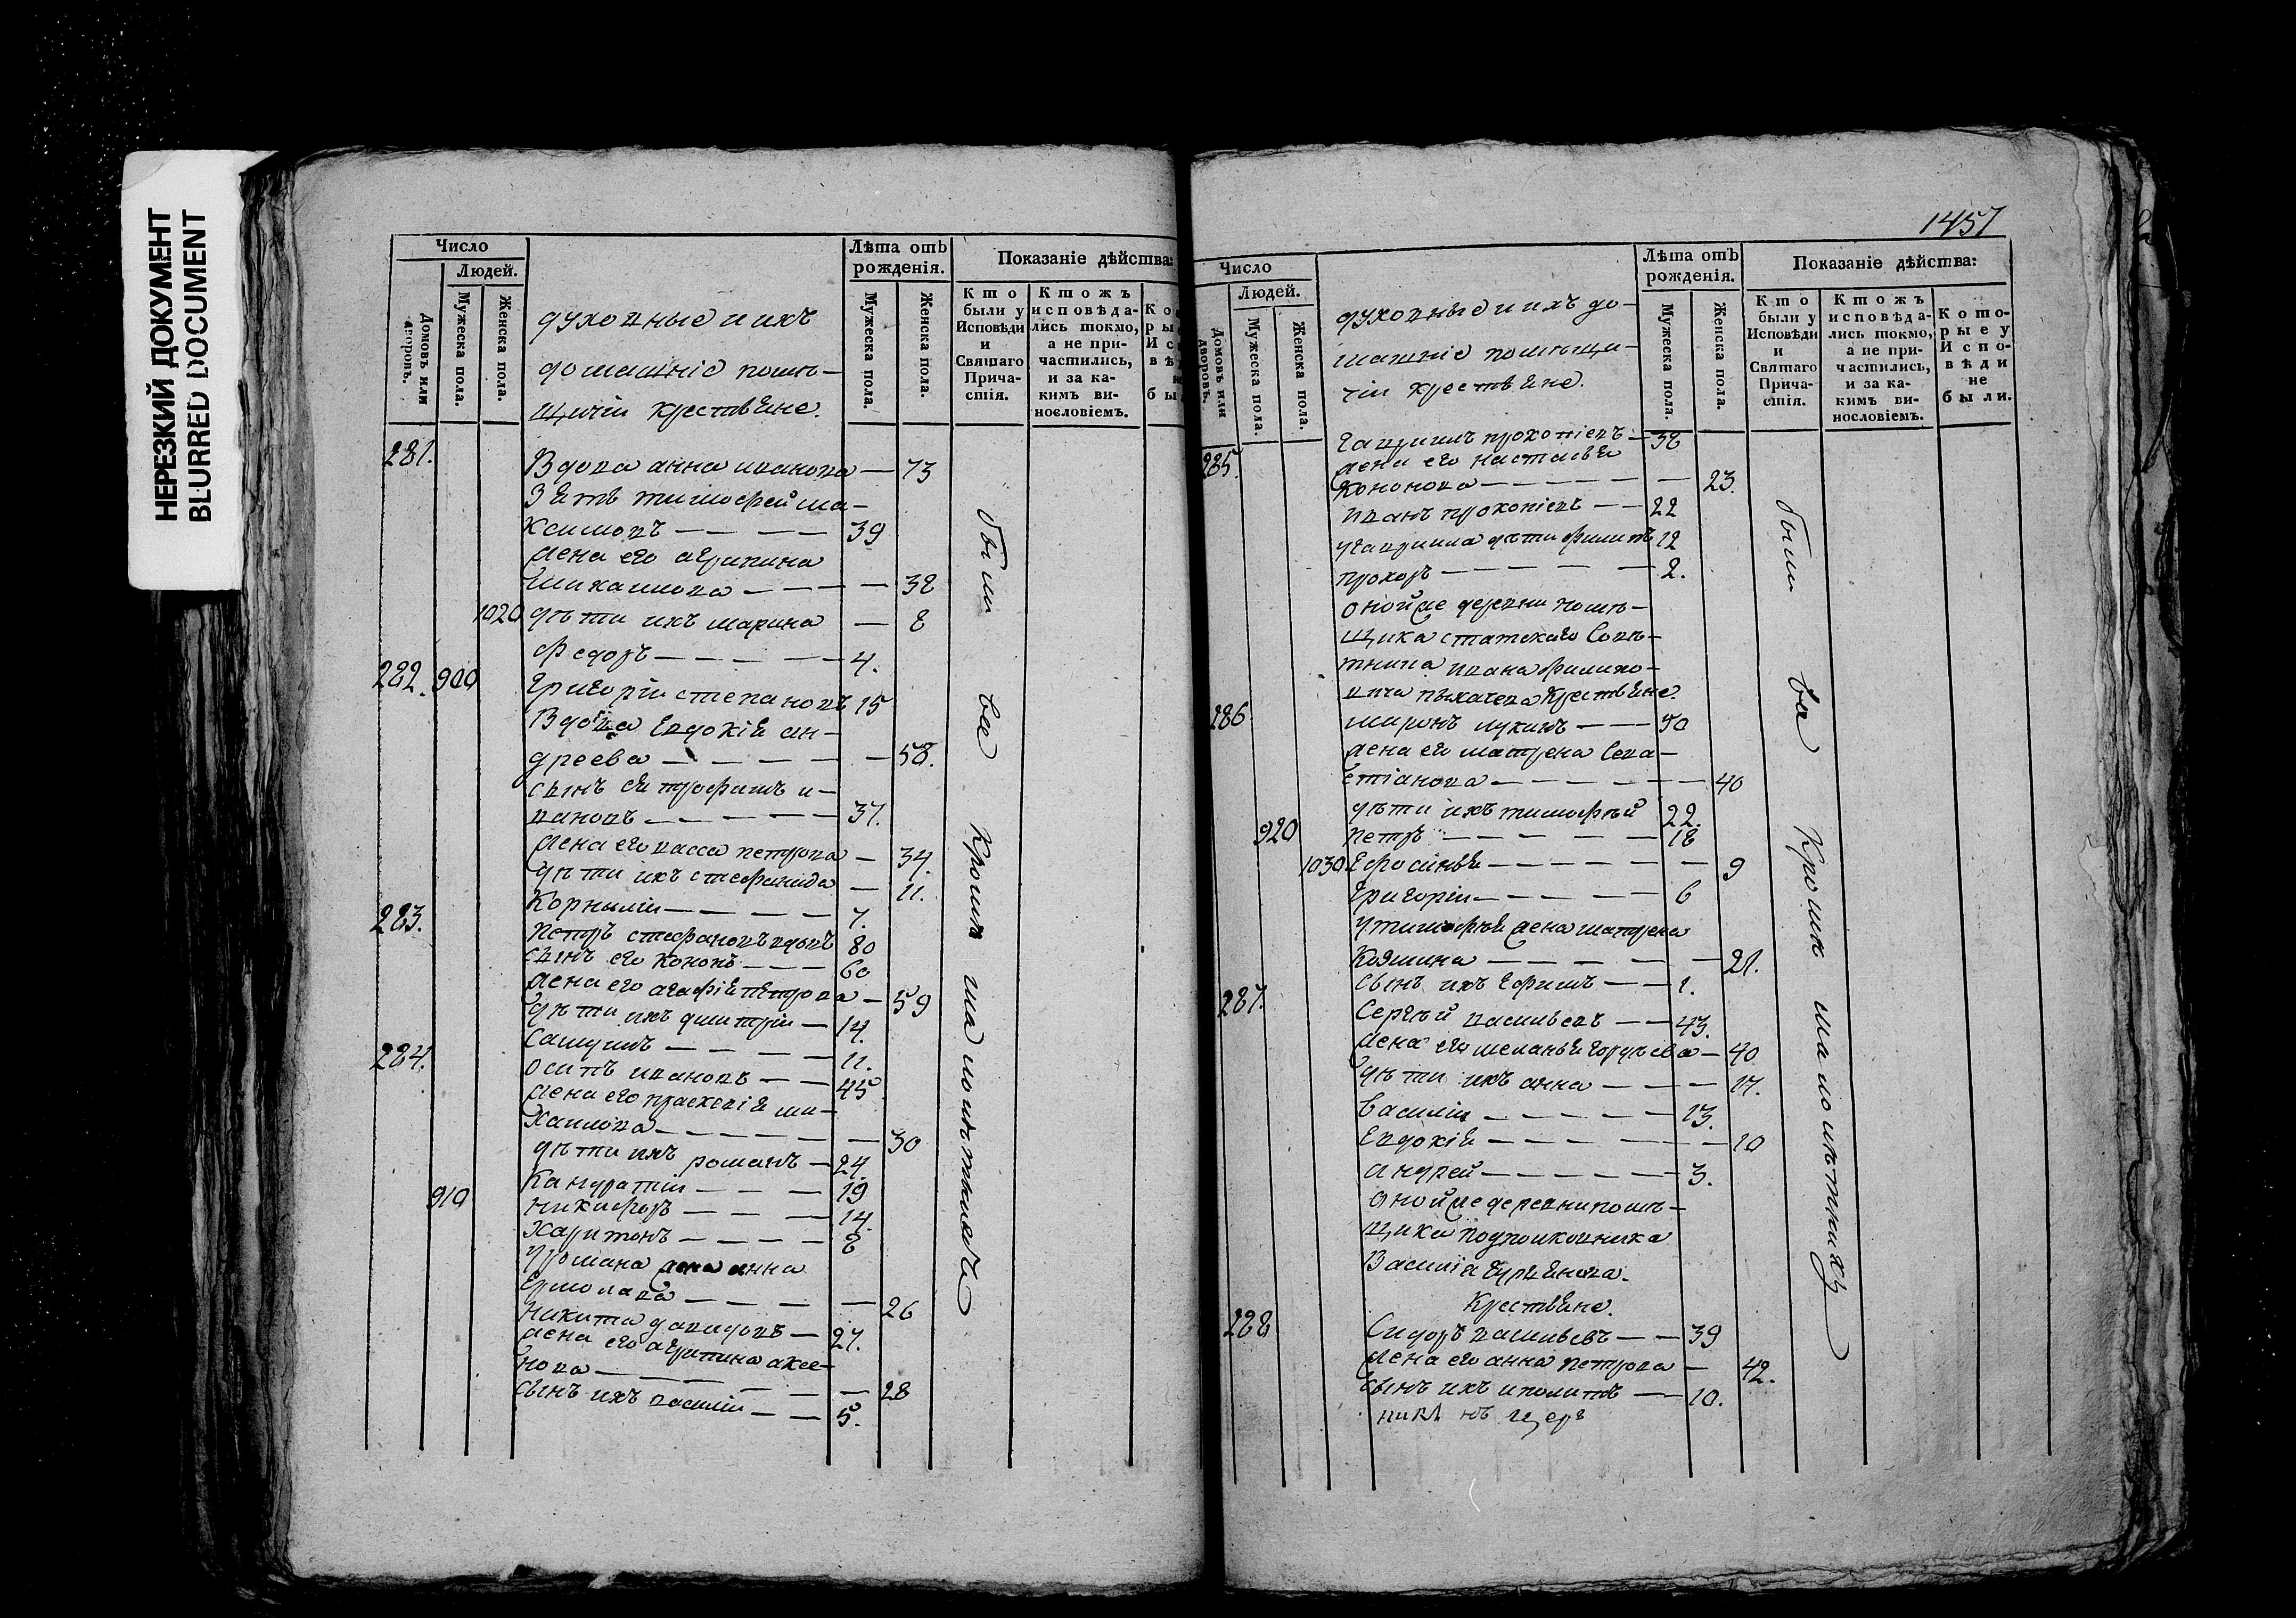 НЕРЕЗКИЙ ДОКУМЕНТ
BLURRED DOCUMENT
Число
Людей.
Домовъ или дворовъ.
Мужеска пола.
Женска пола.
духовные и ихъ
домашніе помѣ-
щичіи крестьяне.
Лѣта отъ рожденія.
Мужеска пола.
Женска пола.
Показаніе дѣйства:
Кто были у Исповѣди и Святаго Причастія.
Ктожъ исповѣдались токмо, а не причастились, и за какимъ винословіемъ.
281. Вдова анна иванова — 73
Зять тимофей ма-
ксимовъ — — — 39
жена его агрипина
Михаилова — — — — 38
1020 дѣти ихъ марина — 8
Федоръ — — — — — 4.
282. 900 Григоріи степановъ 15
Вдова Евдокія ан-
дреева — — — — — 58.
сынъ ея трофимъ и-
вановъ — — — — — 37.
жена его васса петрова — 34.
дѣти ихъ стефанида — 11.
Корныліи — — — — 7.
283. петръ стефановъ вдовъ 80
сынъ его кононъ — — — 60
жена его агафія петрова — 59
дѣти ихъ дмитріи — 14.
Самуилъ — — — — 11.
284. осипъ ивановъ — — 45
жена его праскевія ми-
хаилова — — — — — — 30
дѣти ихъ романъ — 24
Кандратіи — — — 19
910 никифоръ — — — 14.
Харитонъ — — — — 8
у романа жена анна
Ермолаева — — — — — 26
никита давидовъ — 27.
жена его агрипина аксе-
нова — — — — — — 28
сынъ ихъ василіи — — 5.
были
вси
Кромѣ
малолѣтныхъ
1457
Число
Людей.
Домовъ или дворовъ.
Мужеска пола.
Женска пола.
духовные и ихъ до-
машніе помѣщи-
чіи крестьяне.
Лѣта отъ рожденія.
Мужеска пола.
Женска пола.
Показаніе дѣйства:
Кто были у Исповѣди и Святаго Причастія.
Ктожъ исповѣдались токмо, а не причастились, и за какимъ винословіемъ.
Которые у Исповѣди не были.
285. Гавриилъ прокопіевъ — 38
жена его настасья
Кононова — — — — — — 23.
иванъ прокопіевъ — — 22
у гавриила дѣти филипъ 12
прохоръ — — — — — 2.
оной же деревни помѣ-
щика статскаго Совѣ-
тника ивана филипо-
вича пыхачева крестьяне.
286 миронъ лукинъ — — 50
жена его матрена Сева-
стіанова — — — — — — 40
дѣти ихъ тимофѣй 22.
920 петръ — — — — — 18
1030 Ефросинья — — — — — — 9
Григоріи — — — — 6
у тимофѣя жена матрена
Козмина — — — — — — 21.
сынъ ихъ Ефимъ — — 1.
287. Сергѣй васильевъ — — 43.
жена его меланья гордѣева — 40
дѣти ихъ анна — — — 17.
Василіи — — — — — 13.
Евдокія — — — — — — 10
андрей — — — — — 3.
оной же деревни помѣ-
щика подполковника
Василіа
Крестьяне.
288 Сидоръ васильевъ — — 39
жена его анна петрова — 42.
сынъ ихъ иполитъ — — 10.
были
вси
Кромѣ
малолѣтныхъ